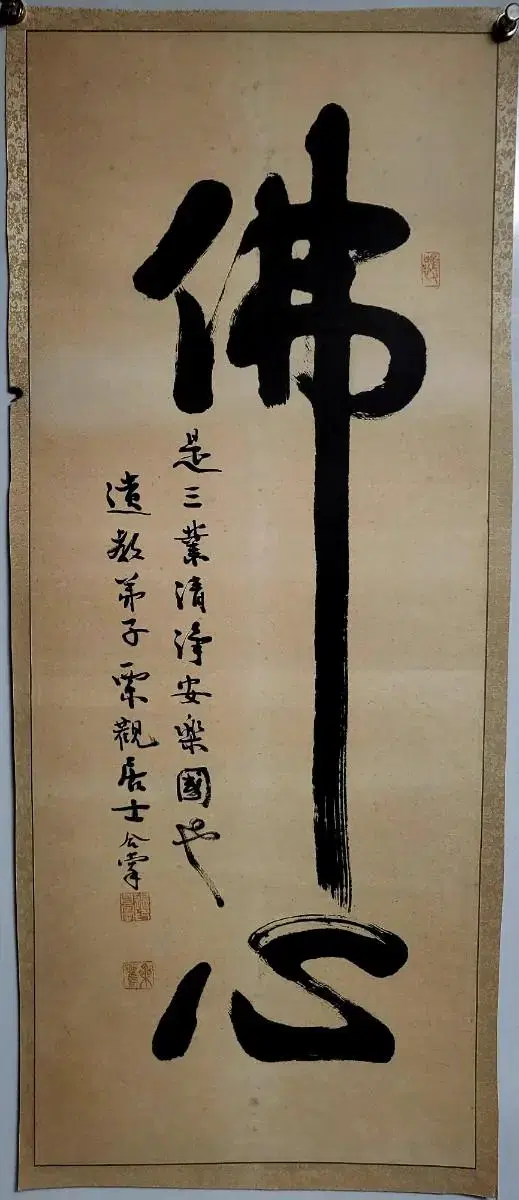 佛心
是三業清淨安樂國也
遺教弟子栗觀居士合掌